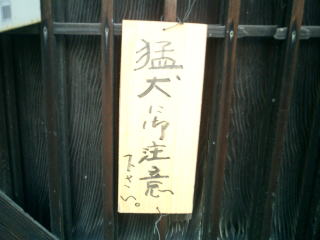 猛犬に御注意
下さい。